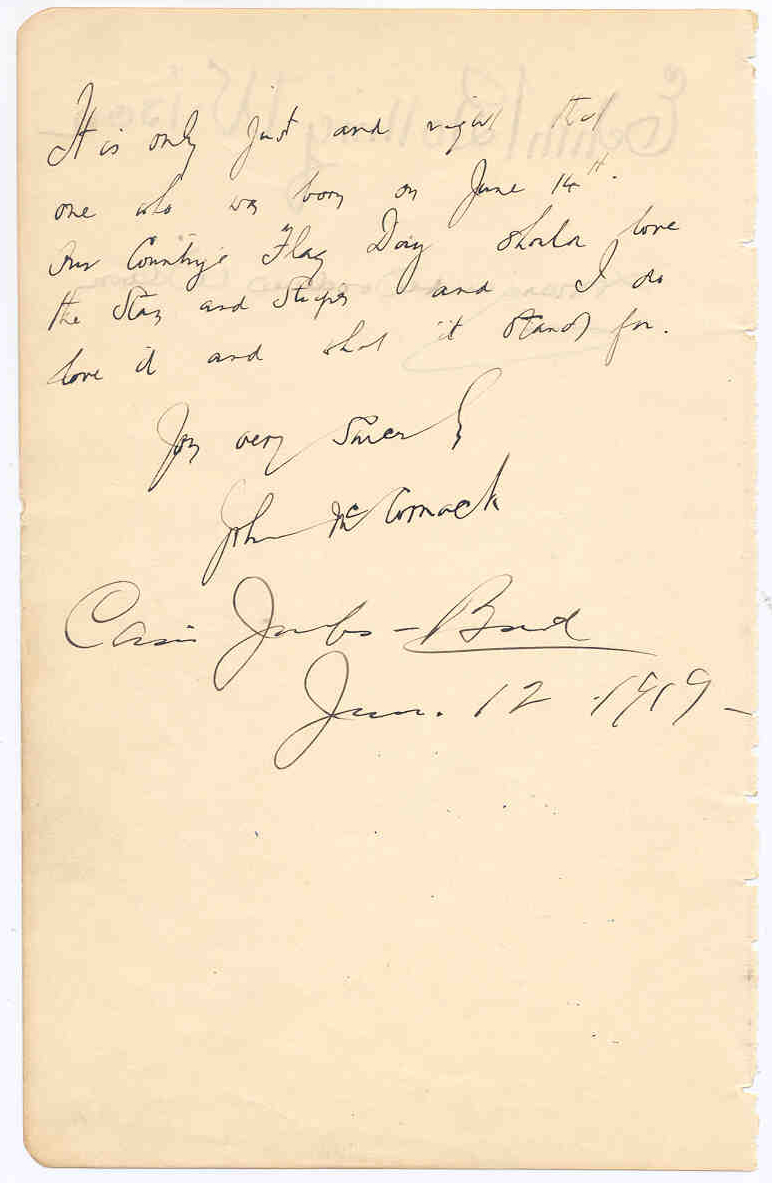 It is only just and right that
one who was born on June 14th.
Our Country's "Flag Day" should love
the Stars and Stripes and I do
love it and what it stands for.
very Sincerely
John McCormack
Jacobs-Bond
Jan. 12 1919-
Edith Bolling Wilson
Woodrow Wilson